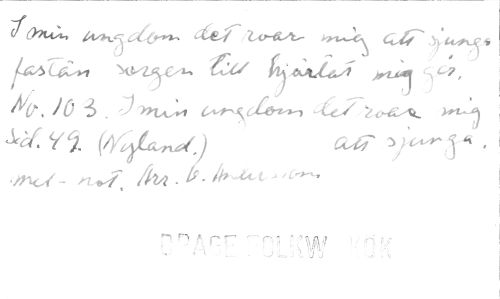 I min ungdom det roar mig att sjunga
fastän sorgen till hjärtat mig går.
No. 103. I min ungdom det roar mig
Sid. 49. (Nyland.) att sjunga.
med not. Arr. O. Andersson